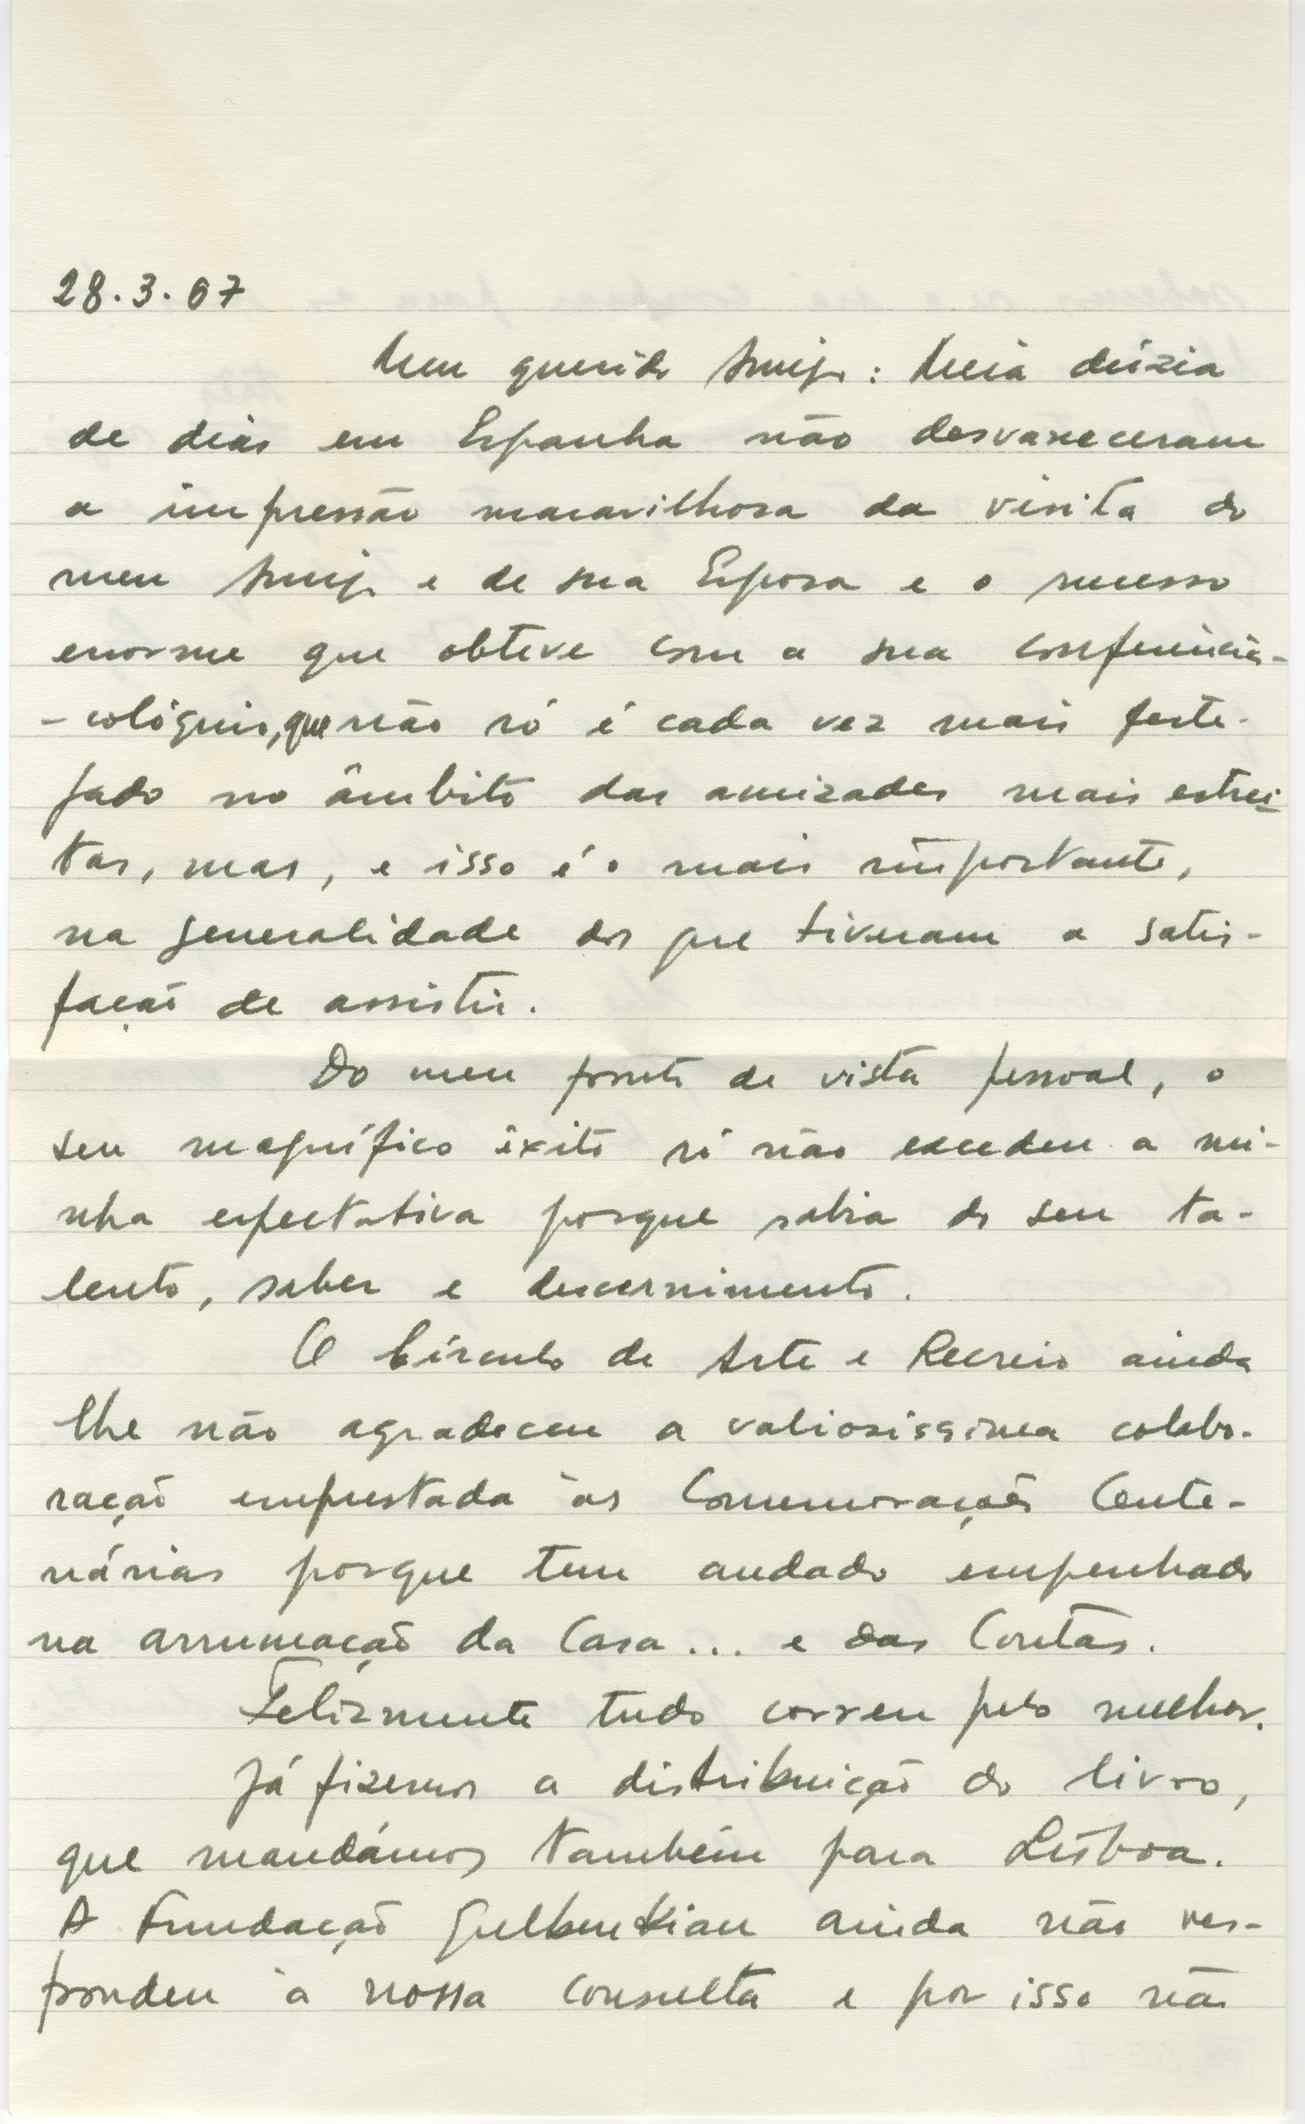 28.3.67
Meu querido Amigo: Meia dúzia
de dias em Espanha não desvaneceram
a impressão maravilhosa da visita do
meu Amigo e de sua Esposa e o sucesso
enorme que obteve com a sua conferência-
-colóquio, que não só é cada vez mais feste-
jado no âmbito das amizades mais estrei-
tas, mas, e isso é o mais importante,
na generalidade dos que tiveram a satis-
fação de assistir.
Do meu ponto de vista pessoal, o
seu magnífico êxito só não excedeu a mi-
nha expectativa porque sabia do seu ta-
lento, saber e discernimento.
O Círculo de Arte e Recreio ainda
lhe não agradeceu a valiosissima colabo-
ração emprestada às Comemorações Cente-
nárias porque tem andado empenhado
na arrumação da Casa... e das Contas.
Felizmente tudo correu pelo melhor.
Já fizemos a distribuição do livro,
que mandámos também para Lisboa.
A Fundação Gulbenkian ainda não res-
pondeu à nossa consulta e por isso não